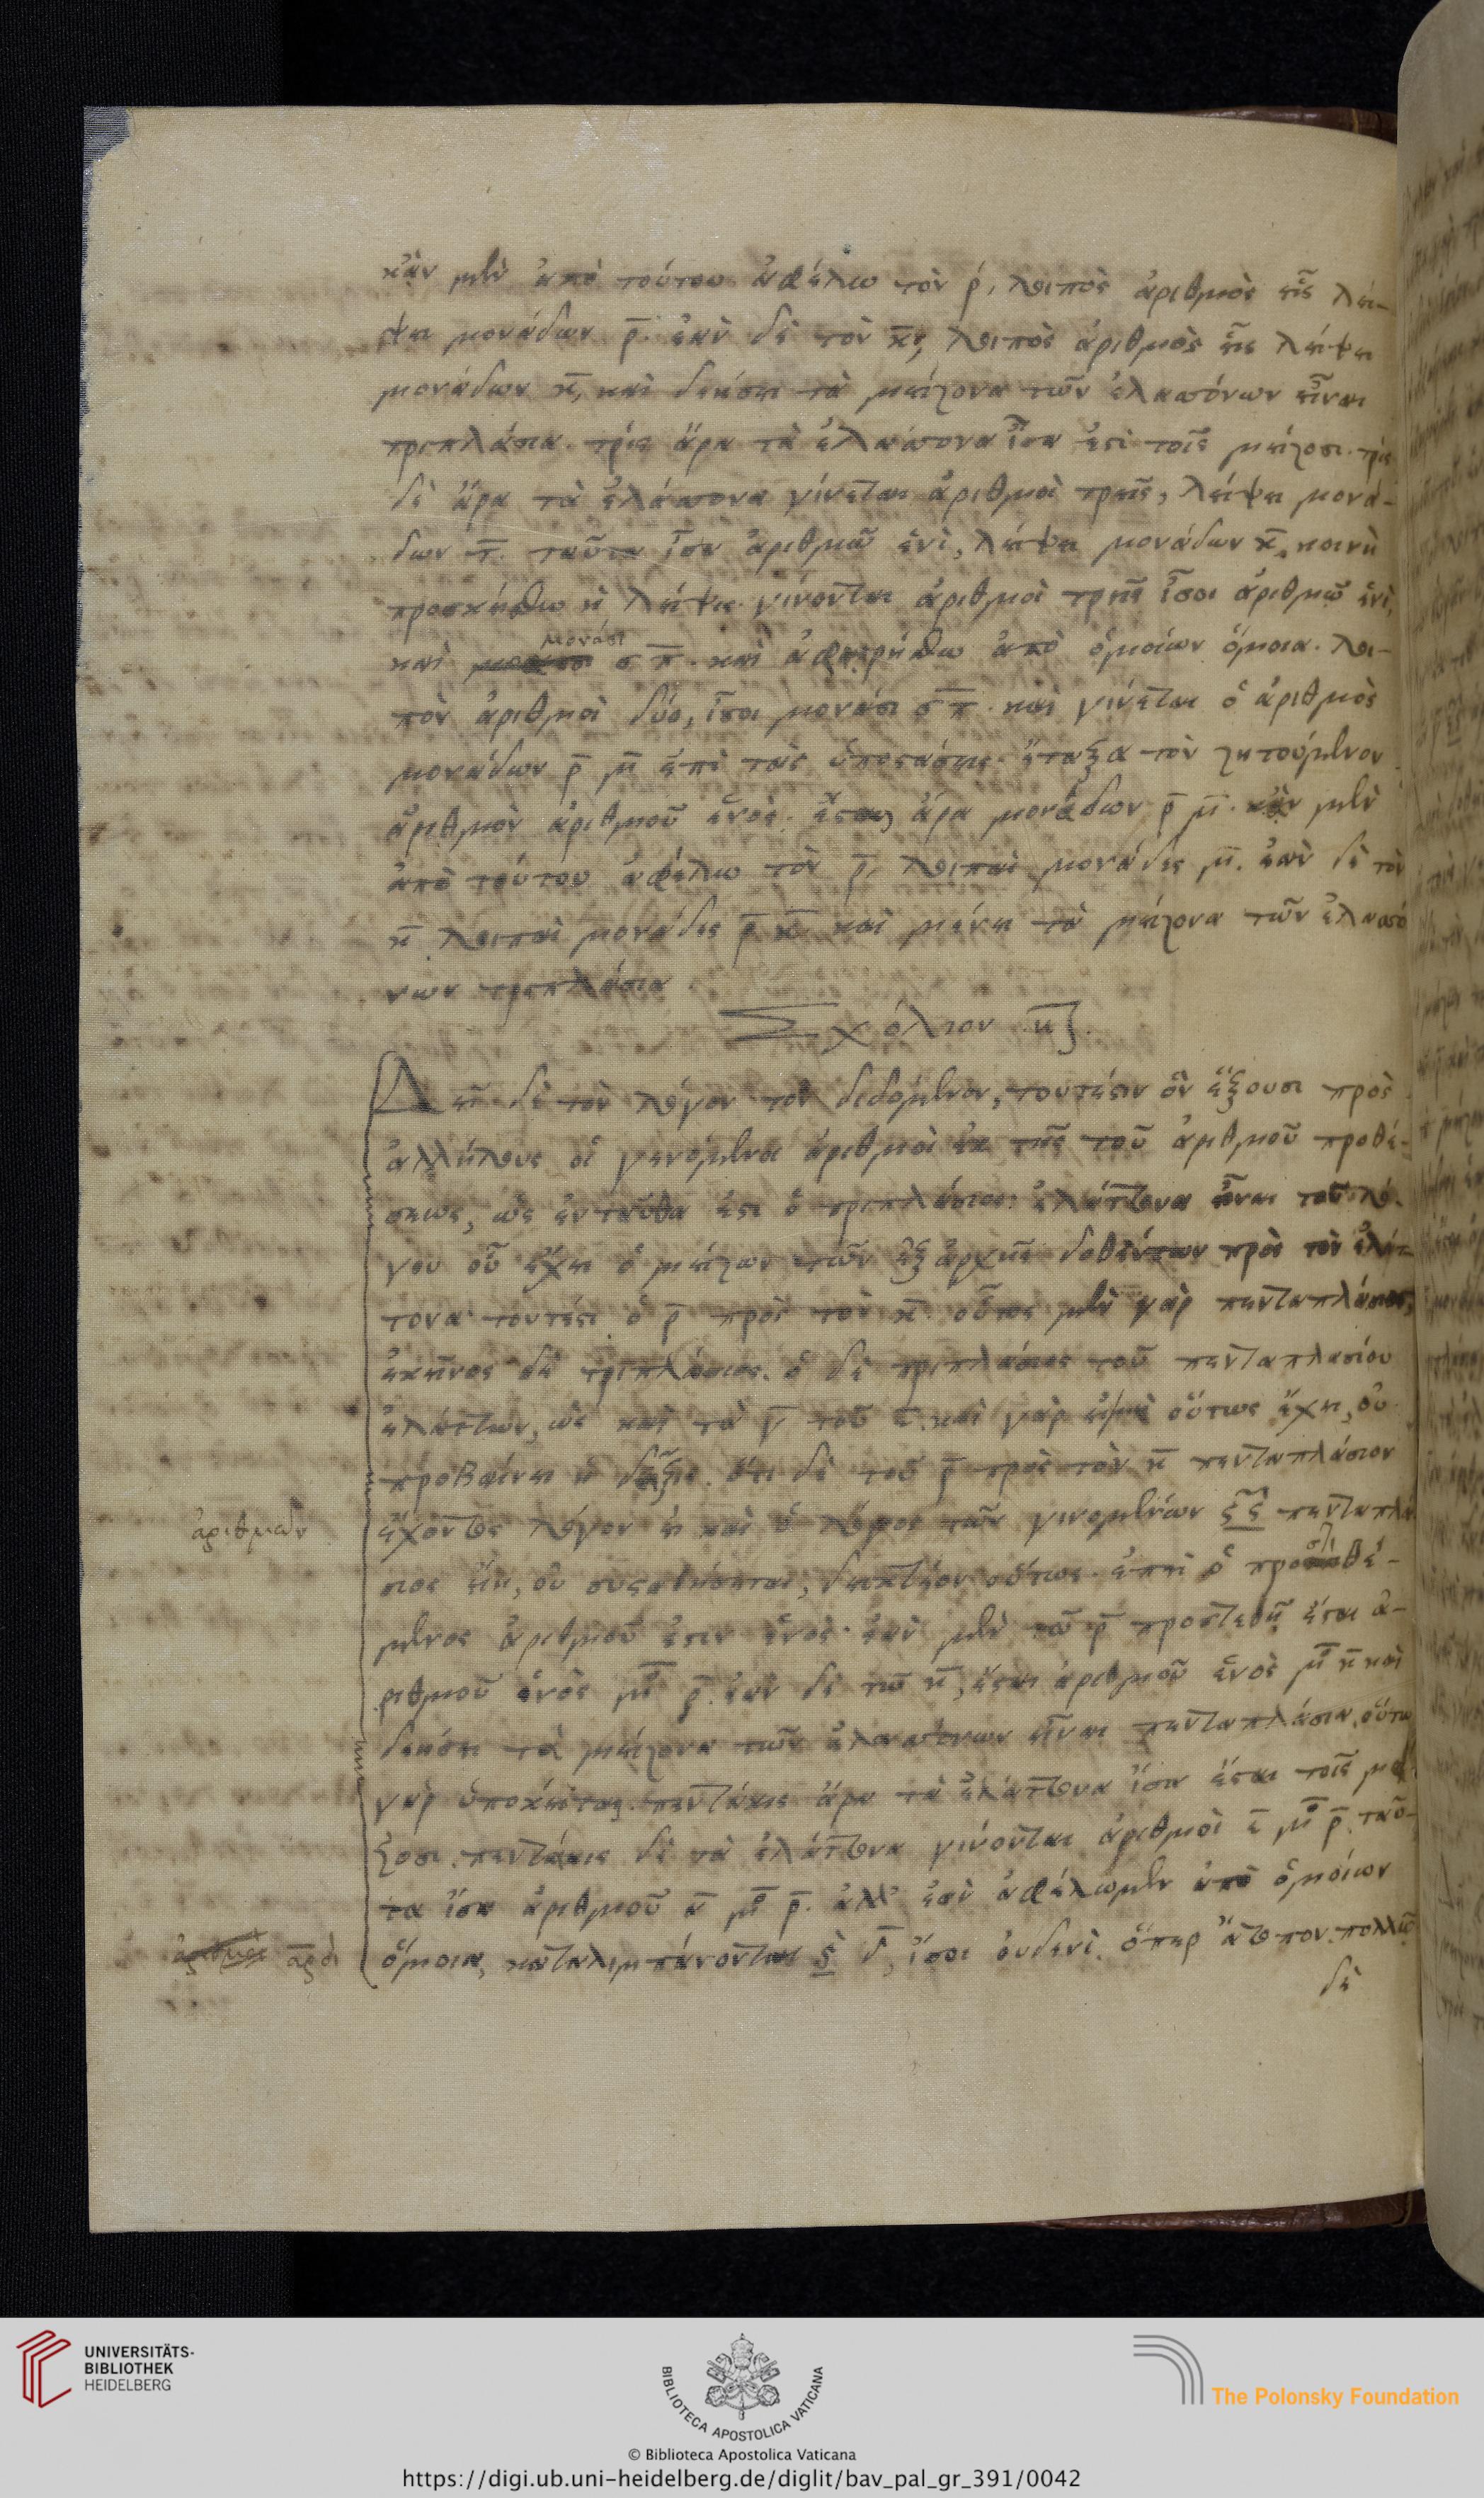 κἂν μὲν ἀπὸ τούτου ἀφέλω τὸν ρ̄, λοιπὸς ἀριθμὸς εἷς λεί-
ψει μονάδων ρ̄. ἐὰν δὲ τὸν κ̄, λοιπὸς ἀριθμὸς εἷς λείψει
μονάδων κ̄, καὶ δεήσει τὰ μείζονα τῶν ἐλασσόνων εἶναι
τριπλάσια. τρὶς ἄρα τὰ ἐλάσσονα ἴσα ἐστὶ τοῖς μείζοσι. τρὶς
δὲ ἄρα τὰ ἐλάσσονα γίνεται ἀριθμοὶ τρεῖς, λείψει μονά-
δων τ̄. ταῦτα ἴσα ἀριθμῷ ἑνὶ, λείψει μονάδων κ̄. κοινὴ
προσκείσθω ἡ λεῖψις. γίνονται ἀριθμοὶ τρεῖς ἴσοι ἀριθμῷ ἑνὶ,
μονάσι
καὶ σ̄π̄. καὶ ἀφῃρήσθω ἀπὸ ὁμοίων ὅμοια. λοι-
πὸν ἀριθμοὶ δύο, ἴσοι μονάσι σ̄π̄. καὶ γίνεται ὁ ἀριθμὸς
μονάδων ρ̄μ̄ ἐπὶ τὰς ὑποστάσεις. ἔταξα τὸν ζητούμενον
ἀριθμὸν ἀριθμοῦ ἑνός. ἔσται ἄρα μονάδων ρ̄μ̄. κἂν μὲν
ἀπὸ τούτου ἀφέλω τὸν ρ̄, λοιπαὶ μονάδες μ̄. ἐὰν δὲ τὸν
κ̄ λοιπαὶ μονάδες ρ̄κ̄ καὶ μένει τὰ μείζονα τῶν ἐλασσό
νων τριπλάσια.
Σχόλιον κζ.
Δεῖ δὲ τὸν λόγον τὸν δεδομένον, τουτέστιν ὃν ἕξουσι πρὸς
ἀλλήλους οἱ γενόμενοι ἀριθμοὶ ἐκ τῆς τοῦ ἀριθμοῦ προθέ-
σεως, ὡς ἐνταῦθα ἐστὶ ὁ τριπλάσιος. ἐλάττονα εἶναι τοῦ λό-
γου οὗ ἔχει ὁ μείζων τῶν ἐξ ἀρχῆς δοθέντων πρὸς τὸν ἐλάτ-
τονα τουτέστι ὁ ρ̄ πρὸς τὸν κ̄. οὗτος μὲν γὰρ πενταπλάσιος,
ἐκεῖνος δὲ τριπλάσιος. ὁ δὲ τριπλάσιος τοῦ πενταπλασίου
ἐλάττων, ὡς καὶ τὰ γ̄ τοῦ ε̄. καὶ γὰρ εἰ μὴ οὕτως ἔχει, οὐ
προβαίνει ἡ δεῖξις. ὅτι δὲ τοῦ ρ̄ πρὸς τὸν κ̄ πενταπλάσιον
ἀριθμῶν
ἔχοντος λόγον εἰ καὶ ὁ λόγος τῶν γινομένων ςς πενταπλά
σιος εἴη, οὐ συσταθήσεται, δεικτέον οὕτως. ἐπεὶ ὁ προστιθέ-
μενος ἀριθμοῦ ἐστιν ἑνός. ἐὰν μὲν τῷ ρ̄ προστεθῇ ἔσται ἀ-
ριθμοῦ ἑνὸς μ̊ ρ̄. ἐὰν δὲ τῷ κ̄, ἔσται ἀριθμοῦ ἑνὸς μ̊ κ̄ καὶ
δεήσει τὰ μείζονα τῶν ἐλασσόνων εἶναι πενταπλάσια. οὕτω
γὰρ ὑπόκειται. πεντάκις ἄρα τὰ ἐλάττονα ἴσα ἔσται τοῖς μεί
ζοσι. πεντάκις δὲ τὰ ἐλάττονα γίνονται ἀριθμοὶ ε̄ μ̊ ρ̄. ταῦ-
τα ἴσα ἀριθμοῦ ᾱ μ̊ ρ̄. ἀλλ' ἐὰν ἀφέλωμεν ἀπὸ ὁμοίων
ὅμοια, καταλιμπάνονται ς̀ δ̄, ἴσοι οὐδενὶ. ὅπερ ἄτοπον. πολλῷ
δὲ
UNIVERSITÄTS-
BIBLIOTHEK
HEIDELBERG
BIBLIOTECA APOSTOLICA VATICANA
The Polonsky Foundation
© Biblioteca Apostolica Vaticana
https://digi.ub.uni-heidelberg.de/diglit/bav_pal_gr_391/0042